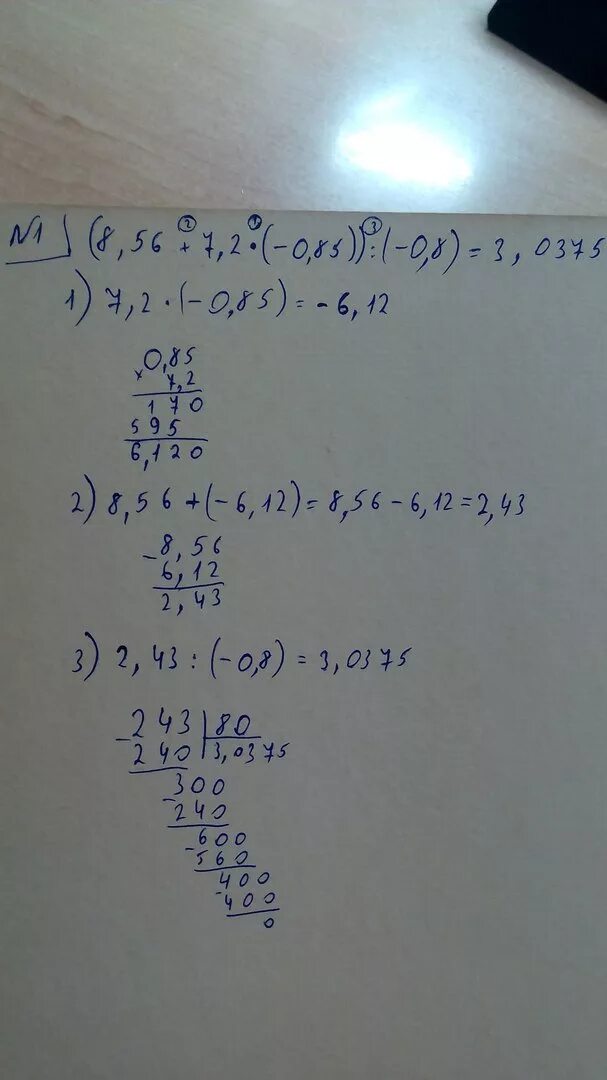 N1 (8,56 + 7,2 · (-0,85)) : (-0,8) = 3,0375
2 1 3
1) 7,2 · (-0,85) = -6,12
0,85
× 7,2
170
595
6,120
2) 8,56 + (-6,12) = 8,56 - 6,12 = 2,43
- 8,56
6,12
2,43
3) 2,43 : (-0,8) = 3,0375
- 243 | 80
240 | 3,0375
300
- 240
600
- 560
400
- 400
0